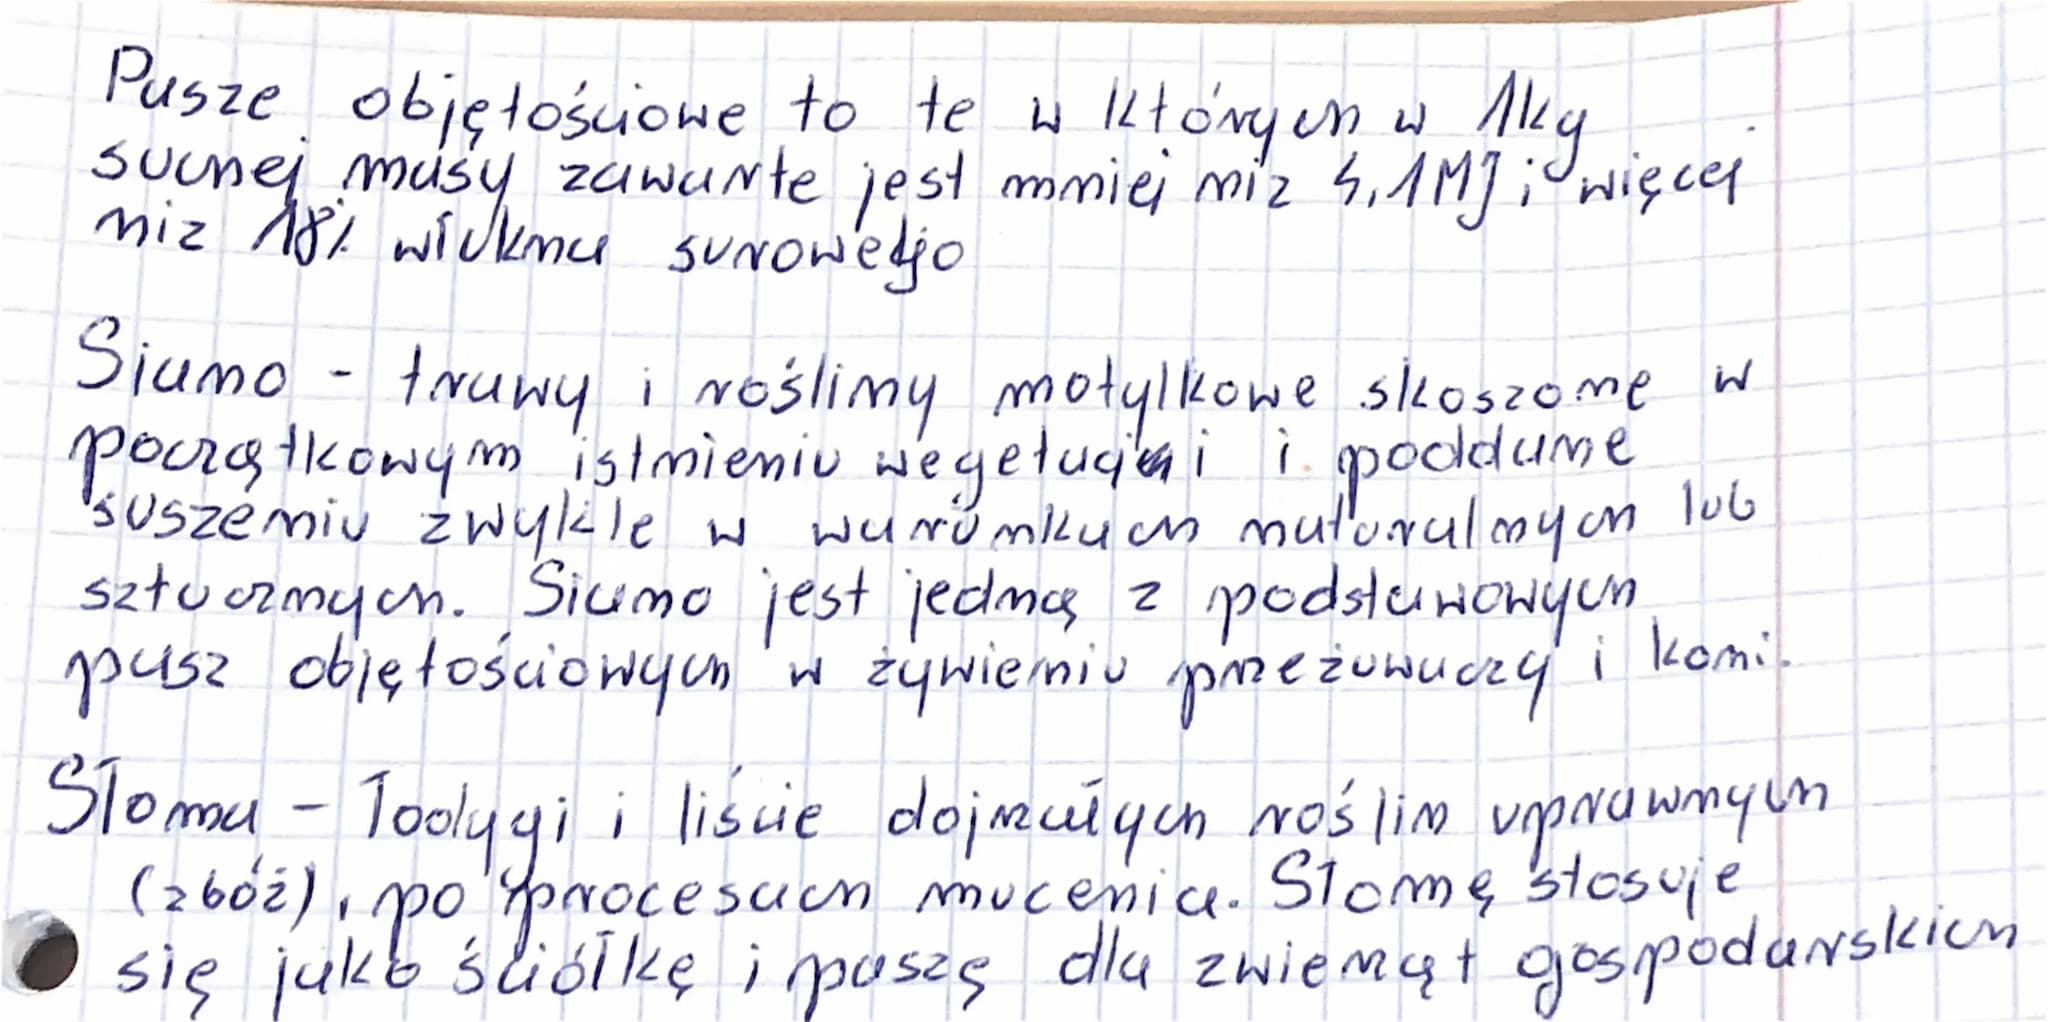 Pasze objętościowe to te w których w 1kg
suchej masy zawarte jest mniej niz 4,1MJ i więcej
niz 18% włukna surowego
Siano - trawy i rośliny motylkowe skoszone w
początkowym istnieniu wegetacji i poddane
suszeniu zwykle w warunkach naturalnych lub
sztucznych. Siano jest jedną z podstawowych
pasz objętościowych w żywieniu przeżuwaczy i koni.
Słoma - Łodygi i liście dojrzałych roślin uprawnych
(zbóż), po procesach mucenia. Słomę stosuje
się jako ściółkę i paszę dla zwierząt gospodarskich